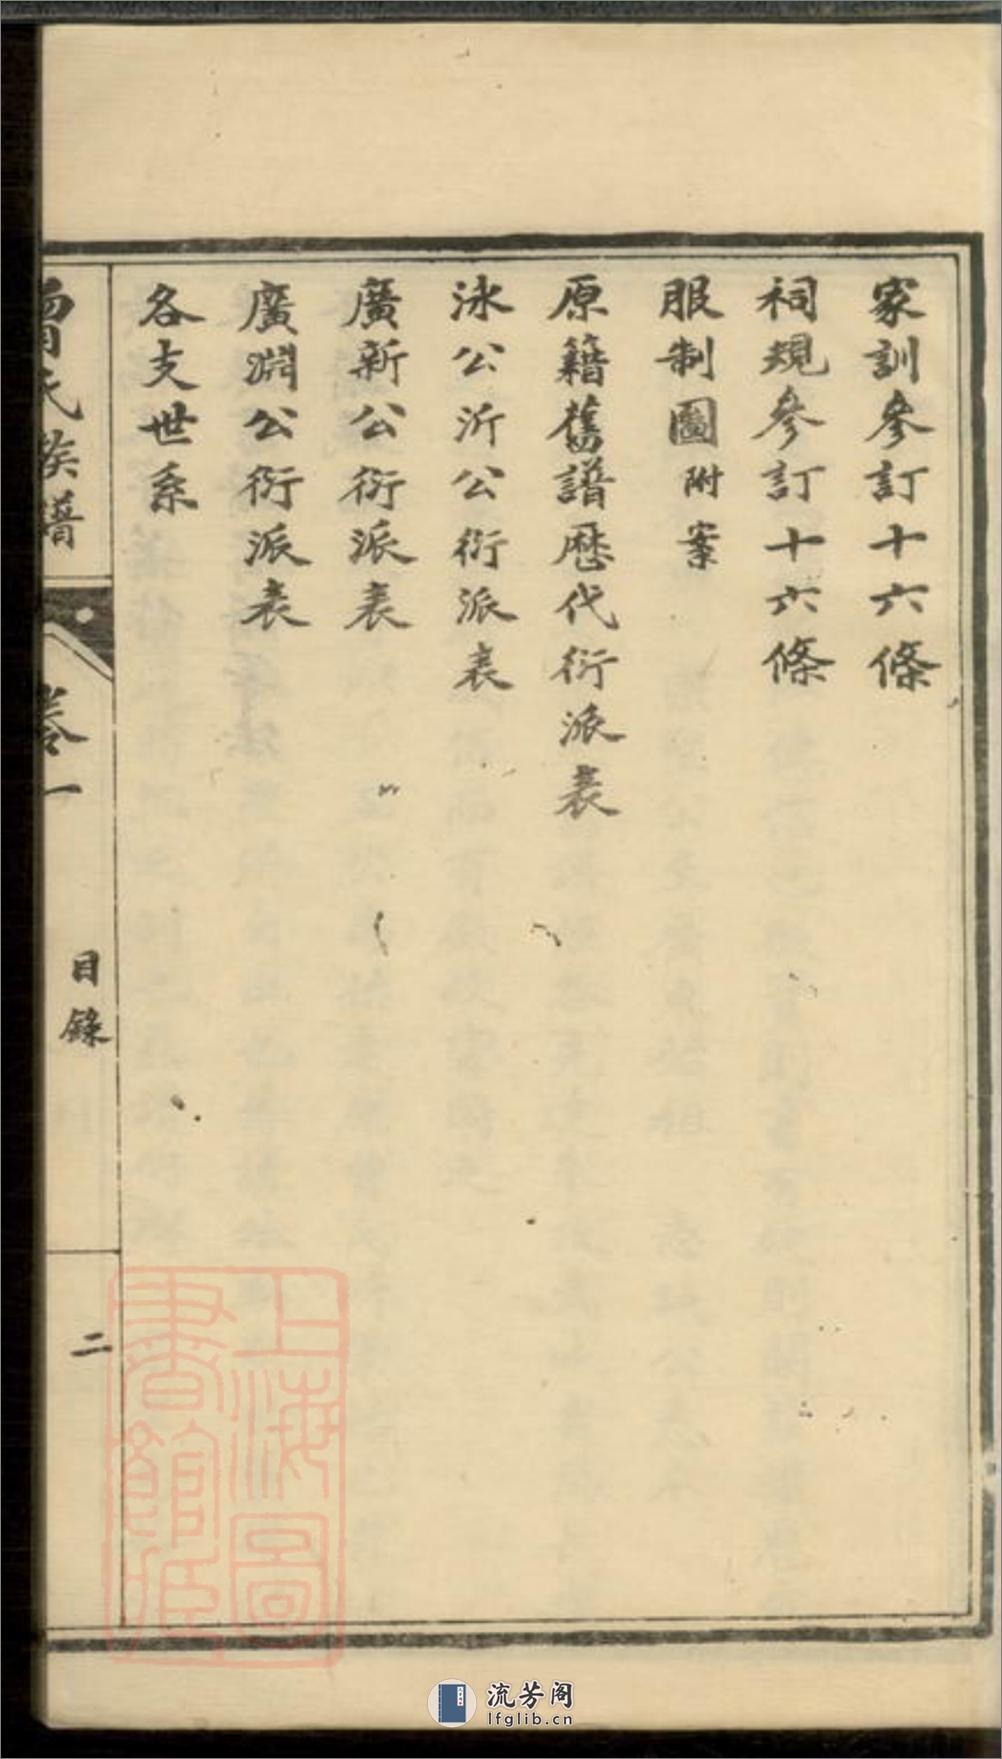 家訓參訂十六條
祠規參訂十六條
服制圖附案
原籍舊譜歷代衍派表
泳公沂公衍派表
廣新公衍派表
廣淵公衍派表
各支世系
曾氏族譜
卷一
目錄
二
上海圖
書館藏
流芳阁
lfglib.cn